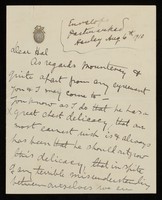 Envelope
Postmarked
Henley Aug 6th 1911
Dear Hal
As regards Mountenay &
quite apart from any agreement
you & I may come to –
you know as I do that he has a
great chest delicacy, that our
most earnest wish is & always
has been that he should outgrow
this delicacy, that in spite
of any terrible misunderstanding
between ourselves we are